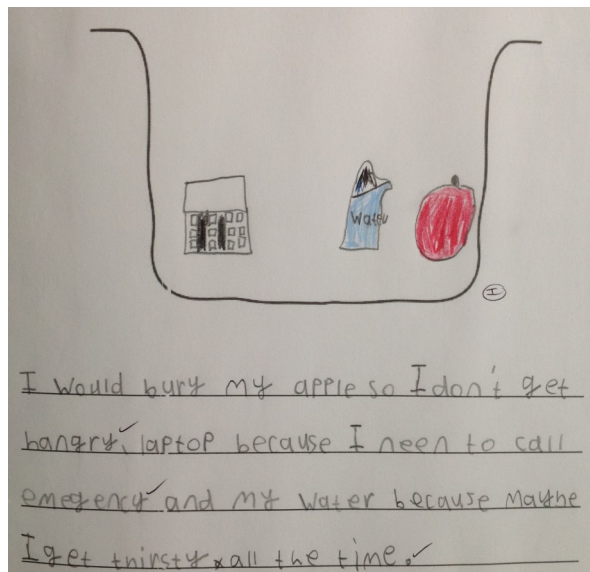 Water
I
I would bury my apple so I don't get
hangry, laptop because I neen to call
emegency and my water because maybe
I get thirsty all the time.